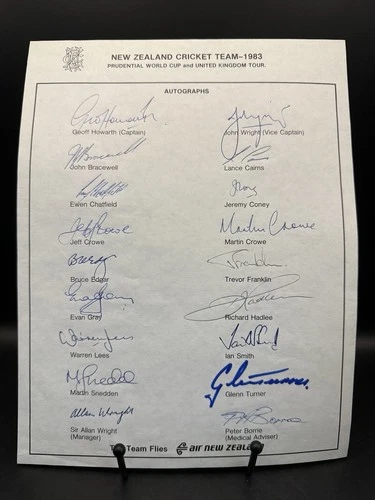 NEW ZEALAND CRICKET TEAM–1983
PRUDENTIAL WORLD CUP and UNITED KINGDOM TOUR.
AUTOGRAPHS
Geoff Howarth (Captain)
John Wright (Vice Captain)
John Bracewell
Lance Cairns
Ewen Chatfield
Jeremy Coney
Jeff Crowe
Jeff Crowe
Martin Crowe
Martin Crowe
Bruce Edgar
Trevor Franklin
Evan Gray
Richard Hadlee
Warren Lees
Ian Smith
Martin Snedden
Glenn Turner
Allan Wright
Sir Allan Wright
(Manager)
Peter Borrie
(Medical Adviser)
Team Flies air new zealand